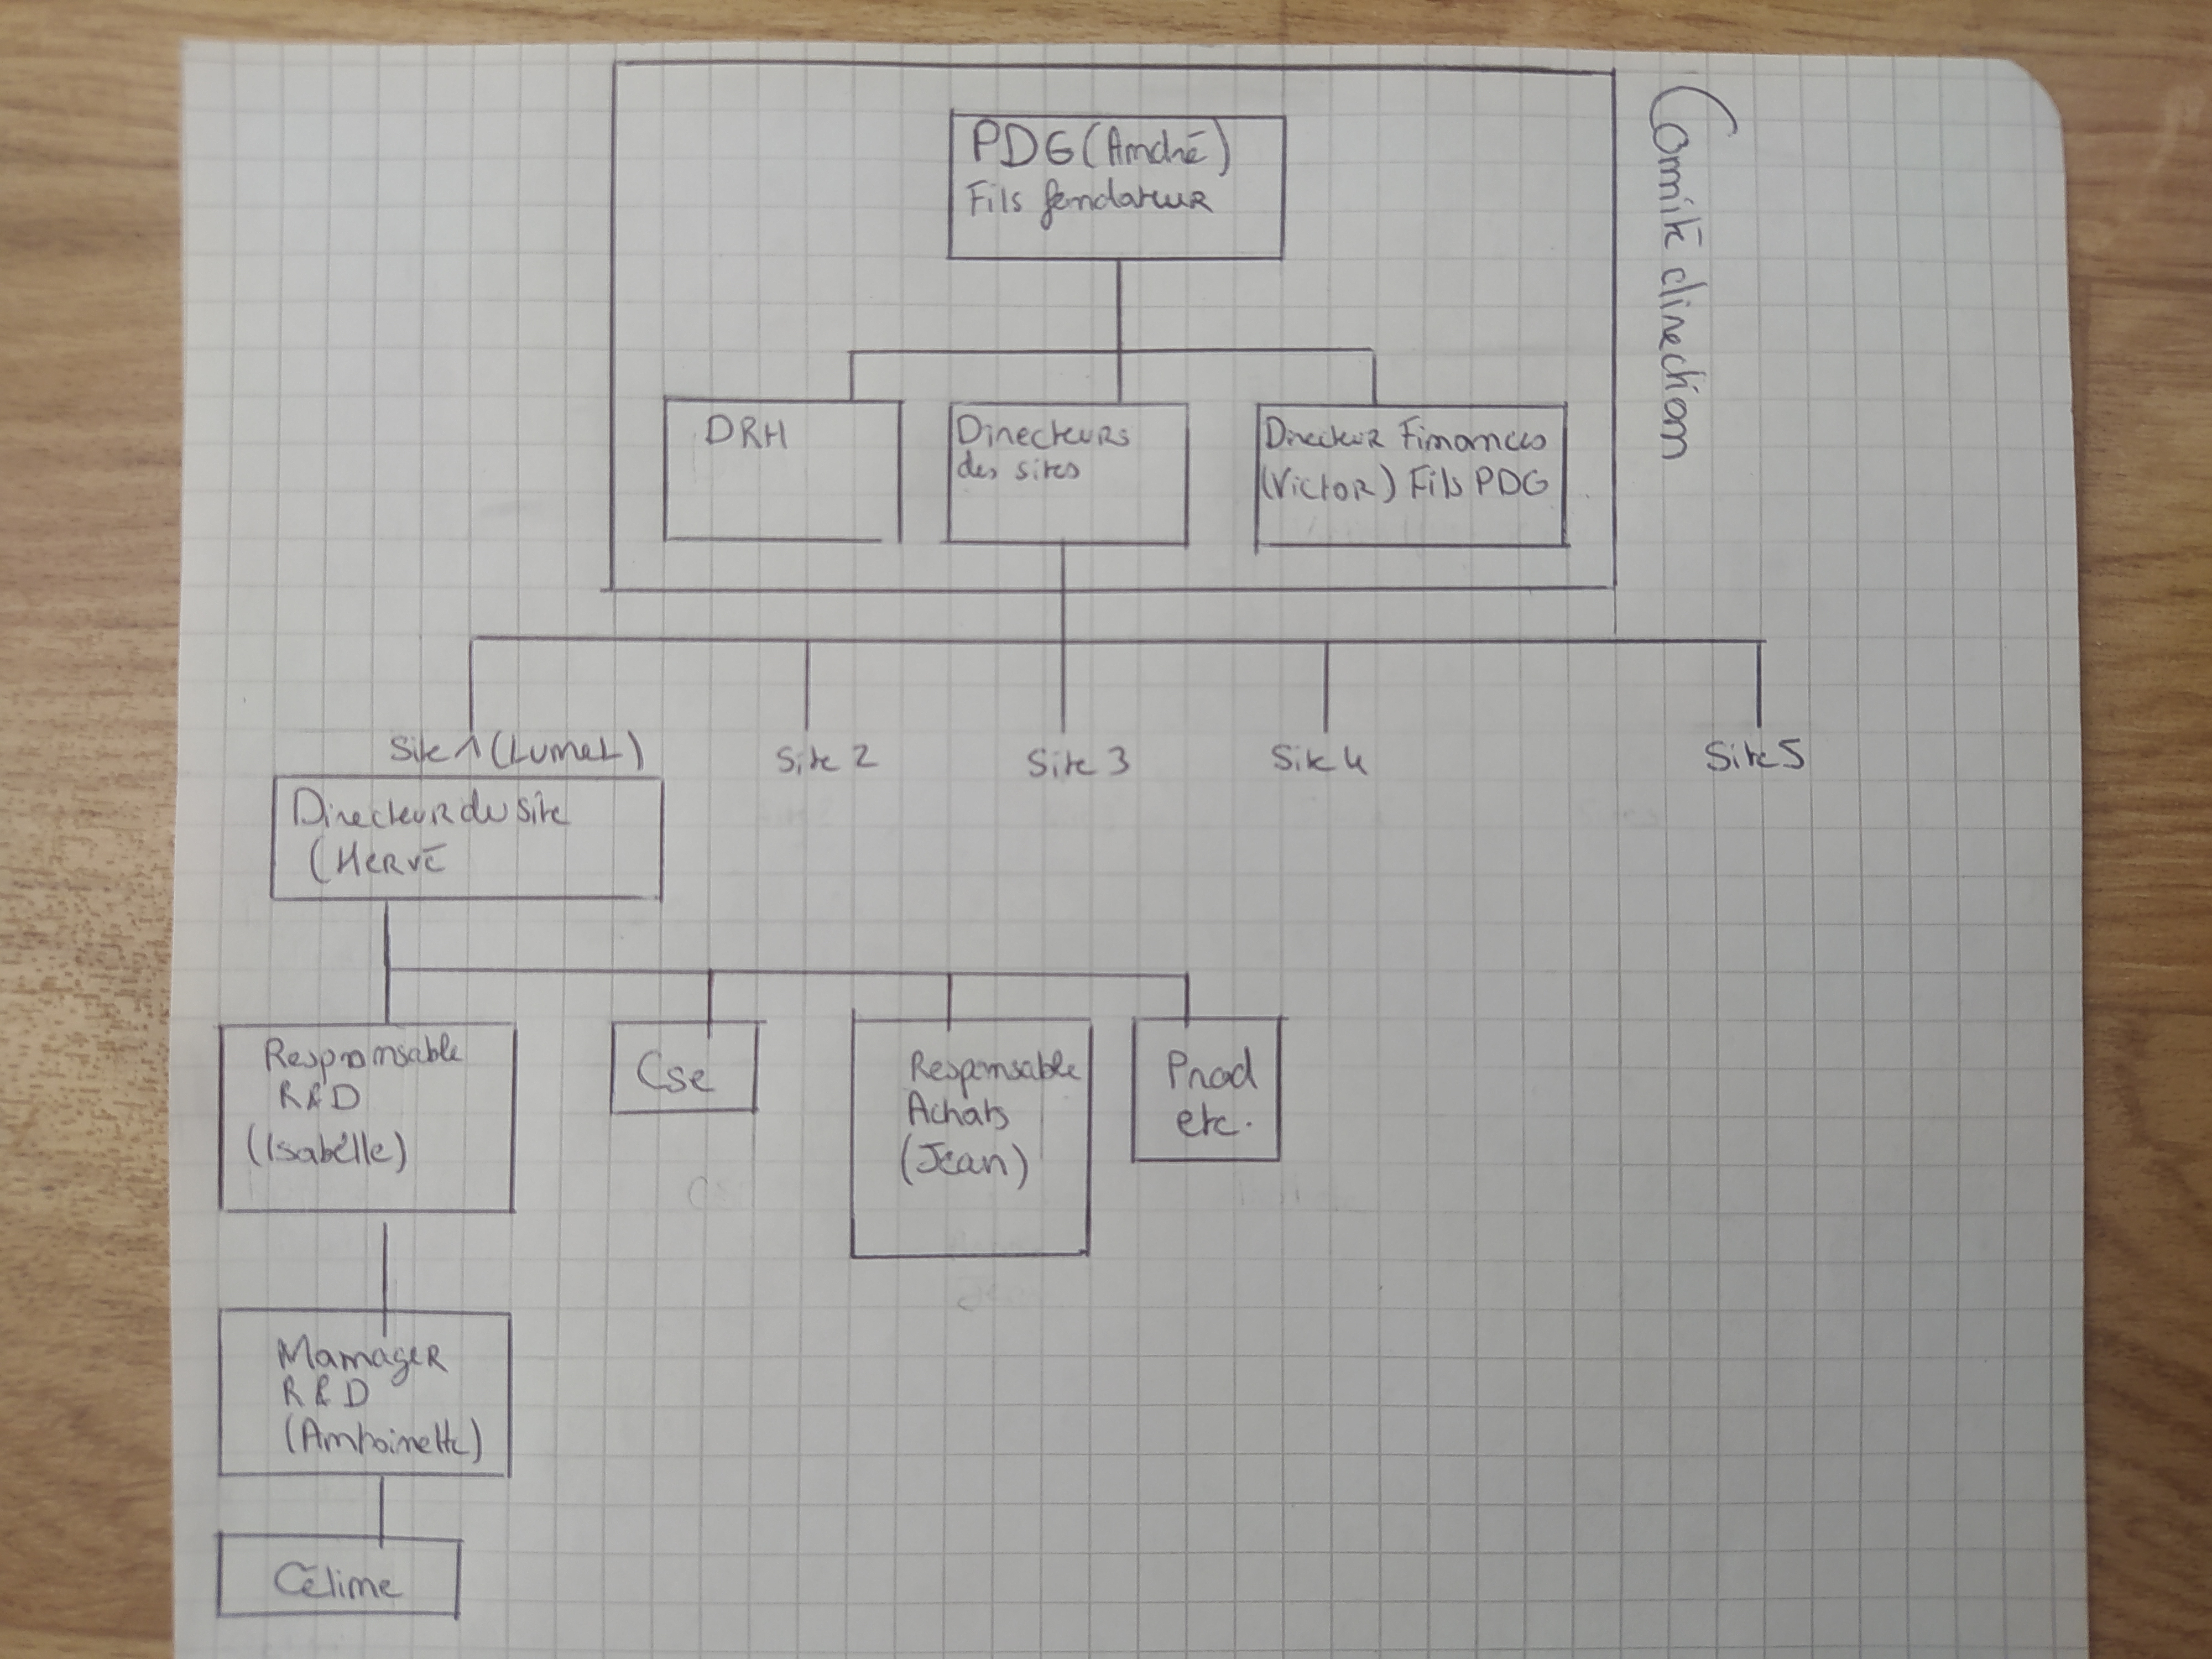 Comité direction
PDG (André)
Fils fondateur
DRH
Directeurs
des sites
Directeur Finances
(Victor) Fils PDG
Site 1 (Lunel)
Site 2
Site 3
Site 4
Site 5
Directeur du site
(Hervé
Responsable
R&D
(Isabelle)
Cse
Responsable
Achats
(Jean)
Prod
etc.
Manager
R&D
(Antoinette)
Céline